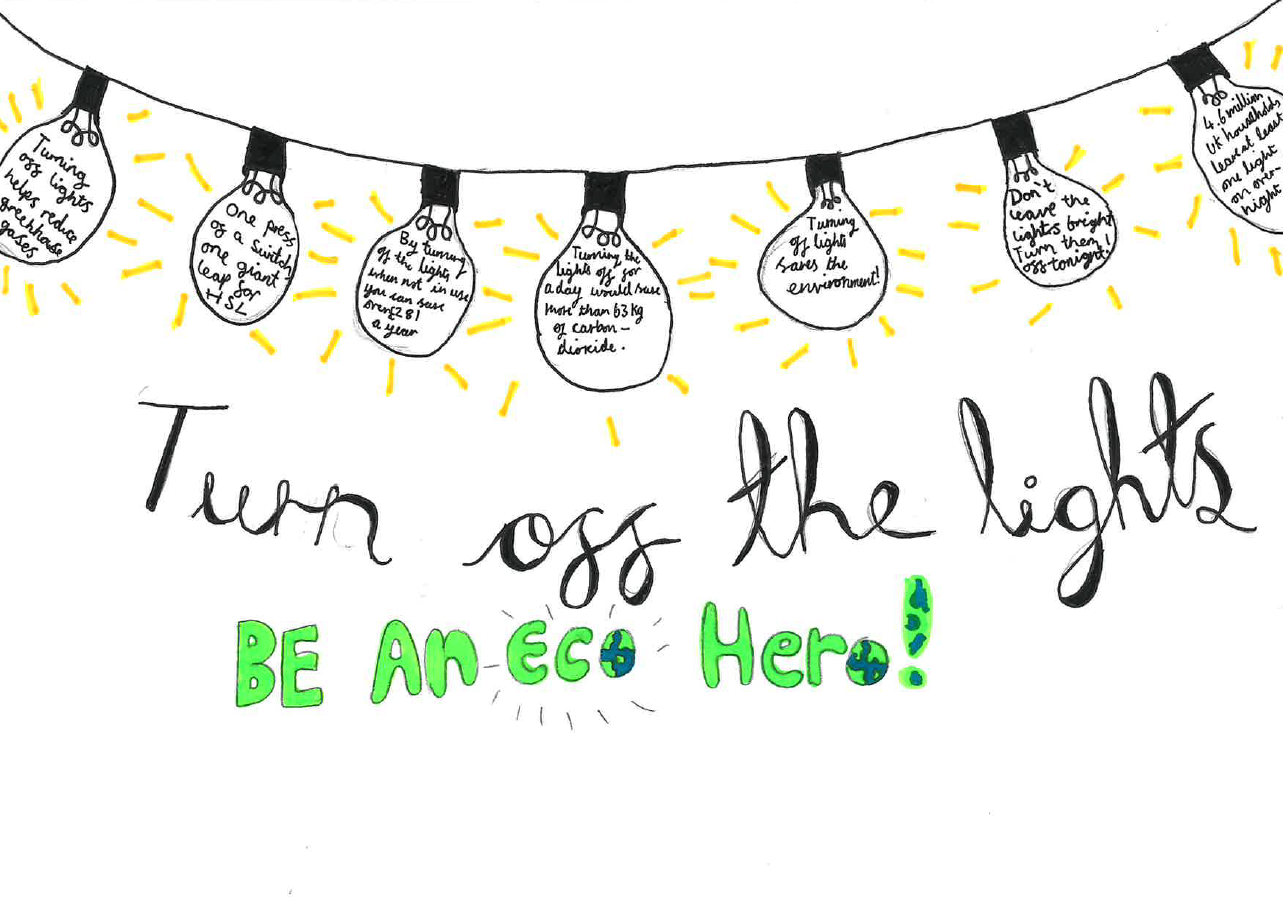 Turning
off lights
helps reduce
greenhouse
gases
One press
of a switch
one giant
leap for
HSL
By turning
off the lights
when not in use
you can save
over £281
a year
Turning the
lights off for
a day would save
more than 63 kg
of carbon-
dioxide.
Turning
off lights
saves the
environment!
Don't
leave the
lights bright
Turn them
off tonight!
4.6 million
UK households
leave at least
one light
on over-
night
Turn off the lights
BE An Eco Hero!